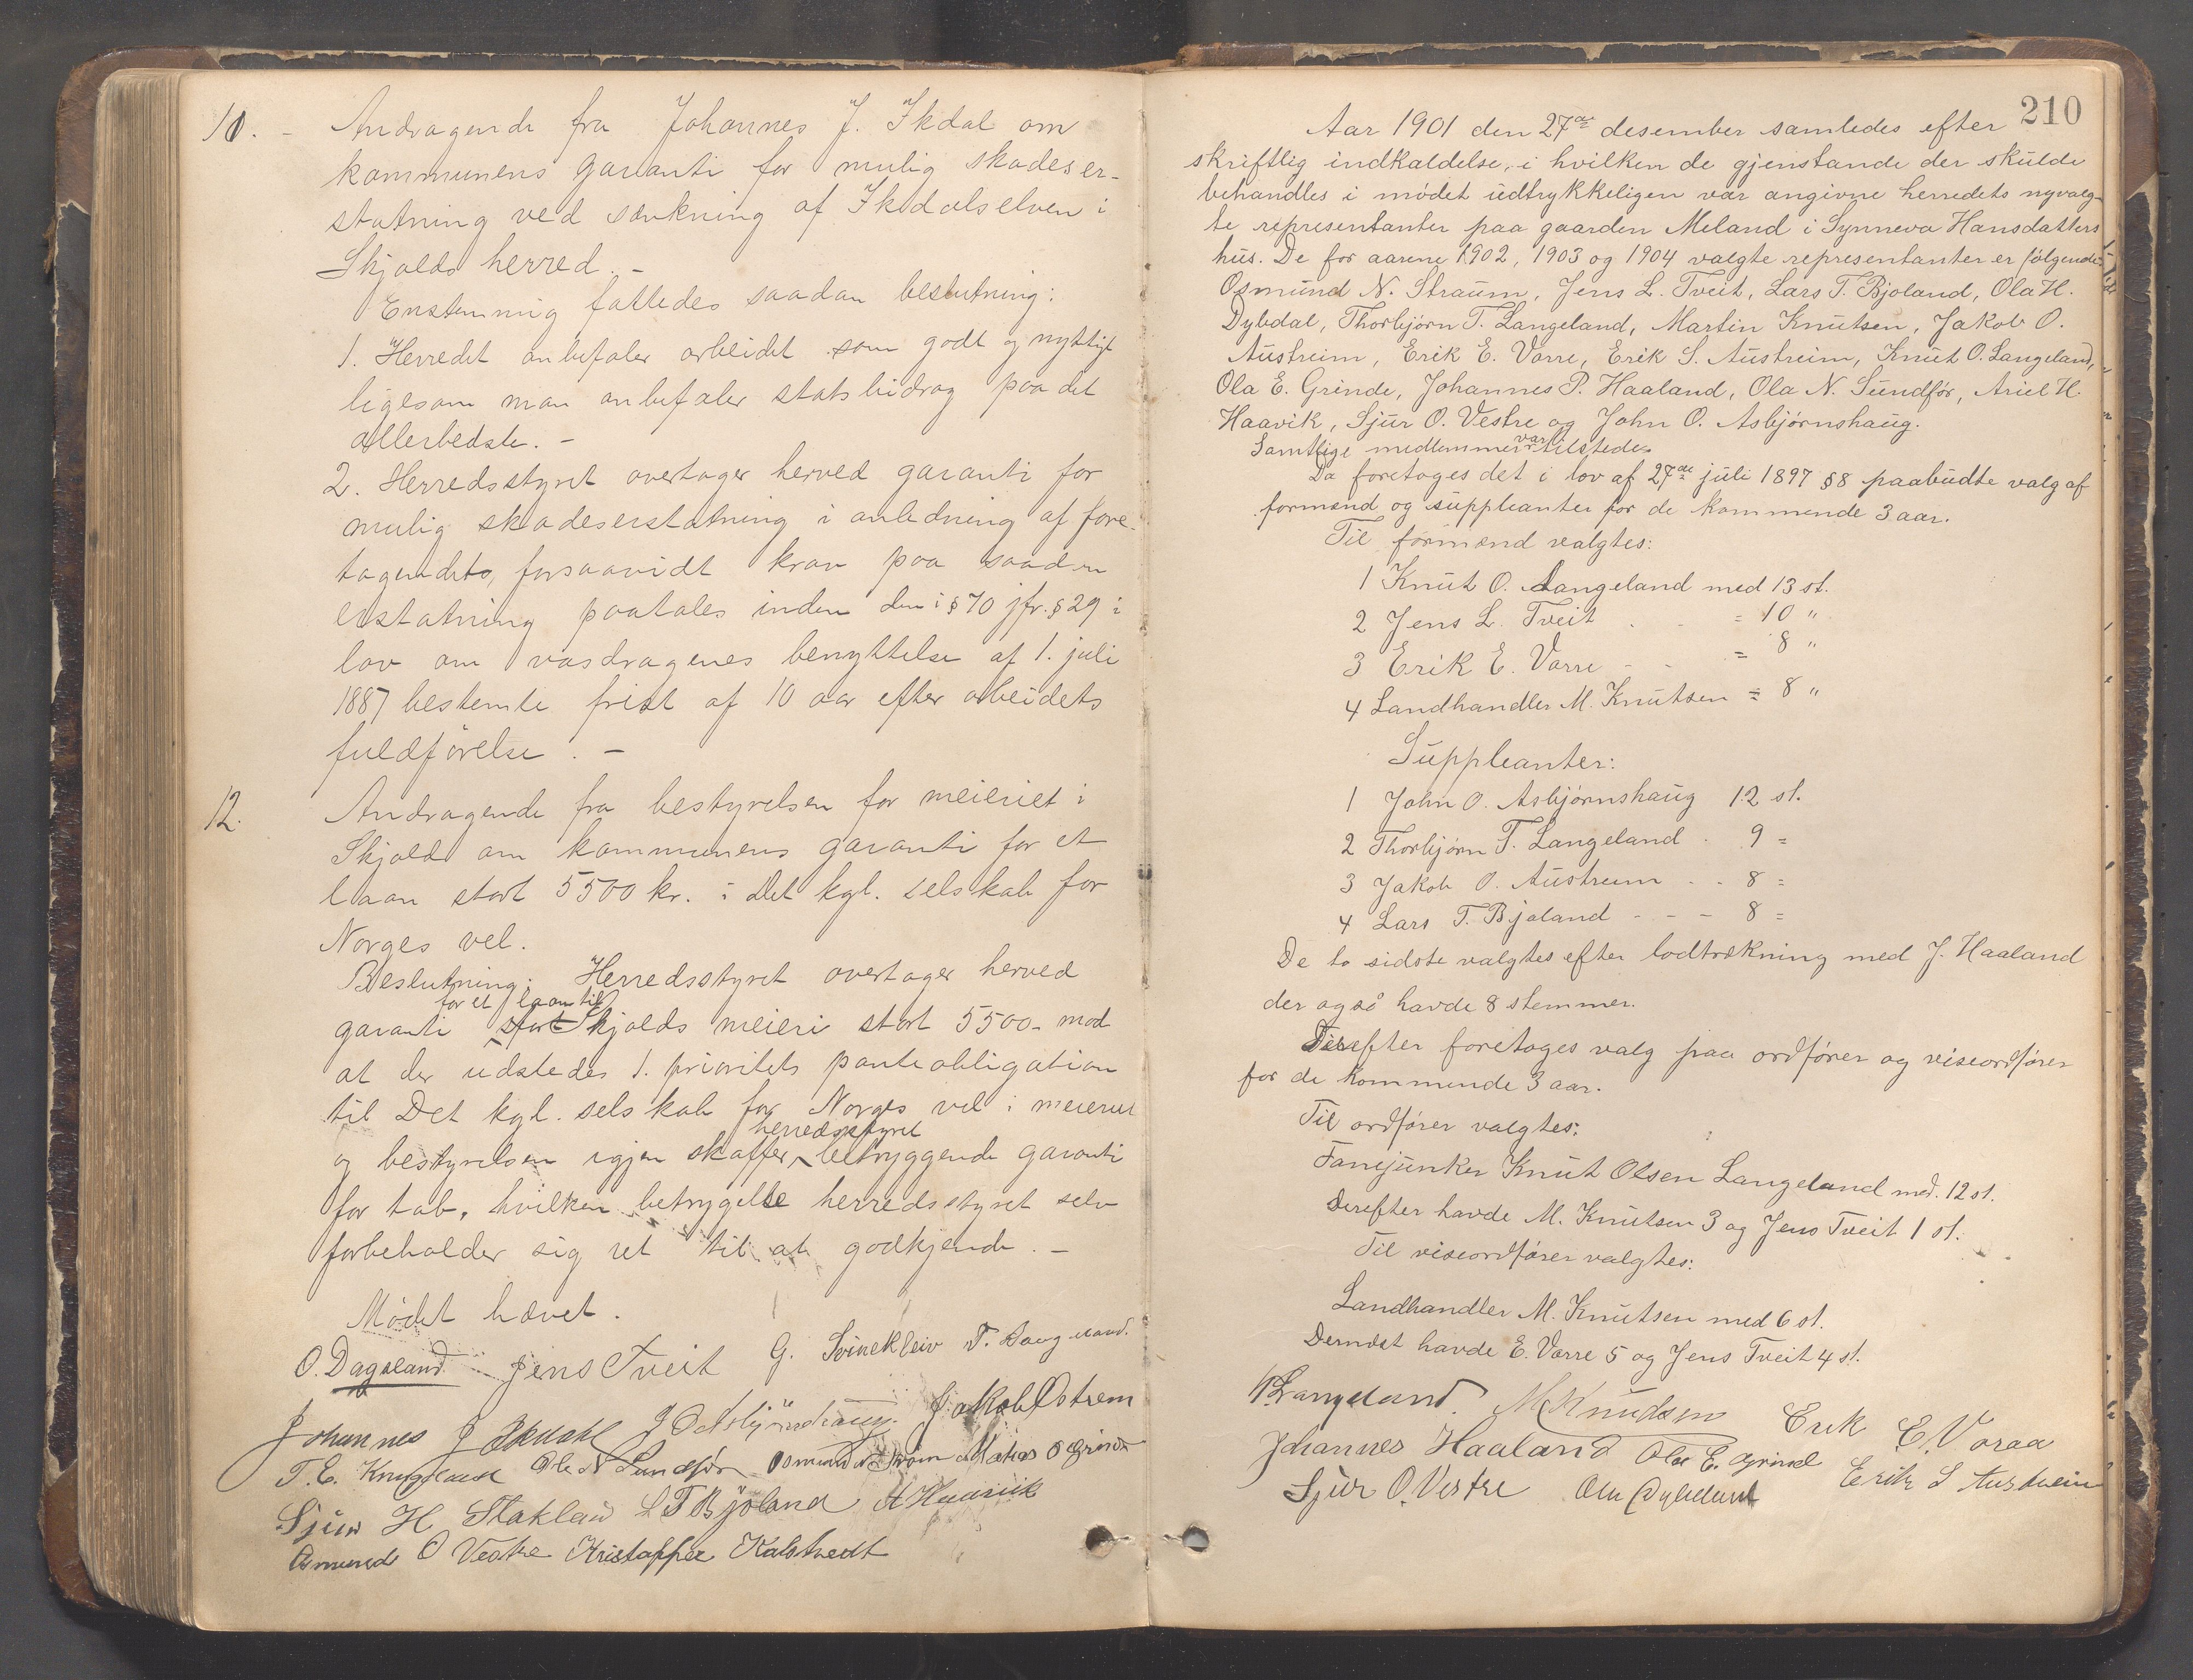 10. - Andragende fra Johannes J. Ikdal om
kommunens garanti for mulig skadeser-
statning ved sænkning af Ikdalselven i
Skjolds herred. -
Enstemmig fattedes saadan beslutning:
1. Herredet anbefaler arbeidet som godt og nyttigt
ligesom man anbefaler statsbidrag paa det
allerbedste. -
2. Herredsstyret overtager herved garanti for
mulig skadeserstatning i anledning af fore-
tagendets, forsaavidt krav paa saadan
erstatning paatales inden den i § 70 jfr. § 29 i
lov om vasdragenes benyttelse af 1. juli
1887 bestemte frist af 10 aar efter arbeidets
fuldførelse. -
12. Andragende fra bestyrelsen for meieriet i
Skjold om kommunens garanti for et
laan stort 5500 kr. i Det kgl. selskab for
Norges vel.
Beslutning: Herredsstyret overtager herved
for et laan til
garanti stort Skjolds meieri stort 5500- mod
at der udstedes 1. prioritets panteobligation
til Det kgl. selskab for Norges vel i meieriet
herredsstyret
og bestyrelsen igjen skaffer betryggende garanti
for tab, hvilken betrygelse herredsstyret selv
forbeholder sig ret til at godkjende. -
Mødet hævet.
O. Dagsland Jens Tveit G. Svinekleiv T. Langeland.
Johannes J Ikdahl J O Asbjörnshaug. Jakob Østrem
T. E. Ole N Sundfør Osmund N Strøm Matias O Grinde
Sjur H Stakland L T Bjoland A Haavik
Osmund O Vestre Kristoffer Kalstvedt
210
Aar 1901 den 27de desember samledes efter
skriftlig indkaldelse, i hvilken de gjenstande der skulde
behandles i mødet udtrykkeligen var angivne herredets nyvalg-
te representanter paa gaarden Meland i Synneva Hansdatters
hus. De for aarene 1902, 1903 og 1904 valgte representanter er følgende:
Osmund N. Straum, Jens L. Tveit, Lars T. Bjoland, Ola H.
Dybdal, Thorbjørn T. Langeland, Martin Knutsen, Jakob O.
Austreim, Erik E. Vorre, Erik S. Austreim, Knut O. Langeland,
Ola E. Grinde, Johannes P. Haaland, Ola N. Sundfør, Ariel H.
Haavik, Sjur O. Vestre og John O. Asbjørnshaug.
Samtlige medlemmer var tilstede.
Da foretoges det i lov af 27de juli 1897 §8 paabudte valg af
formænd og suppleanter for de kommende 3 aar.
Til formænd valgtes:
1 Knut O. Langeland med 13 st.
2 Jens L. Tveit . - = 10 "
3 Erik E. Vorre - - = 8 "
4 Landhandler M. Knutsen = 8 "
Suppleanter:
1 John O. Asbjørnshaug 12 st.
2 Thorbjørn T. Langeland . 9 =
3 Jakob O. Austreim - . 8 =
4 Lars T. Bjoland - - - 8 =
De to sidste valgtes efter lodtrækning med J. Haaland
der også havde 8 stemmer.
Derefter foretoges valg paa ordfører og viseordfører
for de kommende 3 aar.
Til ordfører valgtes:
Fanejunker Knut Olsen Langeland med. 12 st.
Derefter havde M. Knutsen 3 og Jens Tveit 1 st.
Til viseordfører valgtes:
Landhandler M. Knutsen med 6 st.
Dernæst havde E. Vorre 5 og Jens Tveit 4 st.
K Langeland. M Knudsen Erik E. Voraa
Johannes Haaland Ola E. Grind Erik S Austreim
Sjur O. Vestre Ola Dybdahl